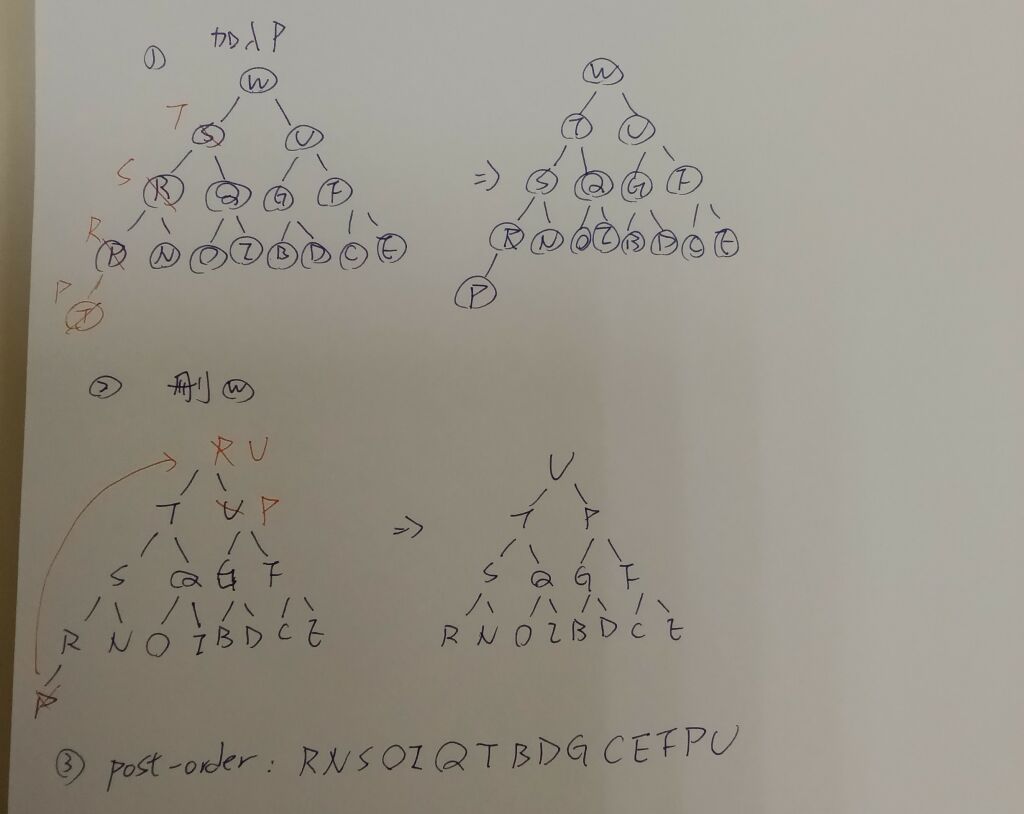 ① 加入 P
W W
T S U T U
S R Q G F => S Q G F
R P N O I B D C E R N O I B D C E
P T P
② 刪 W
R U U
T U P => T P
S Q G F S Q G F
R N O I B D C E R N O I B D C E
P
③ post-order: RNSOIQTBDGCEFPU